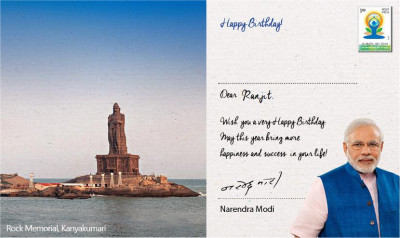 Happy Birthday!
Dear Ranjit.
Wish you a very Happy Birthday.
May this year bring more
happiness and success in your life!
नरेन्द्र मोदी
Narendra Modi
Rock Memorial, Kanyakumari